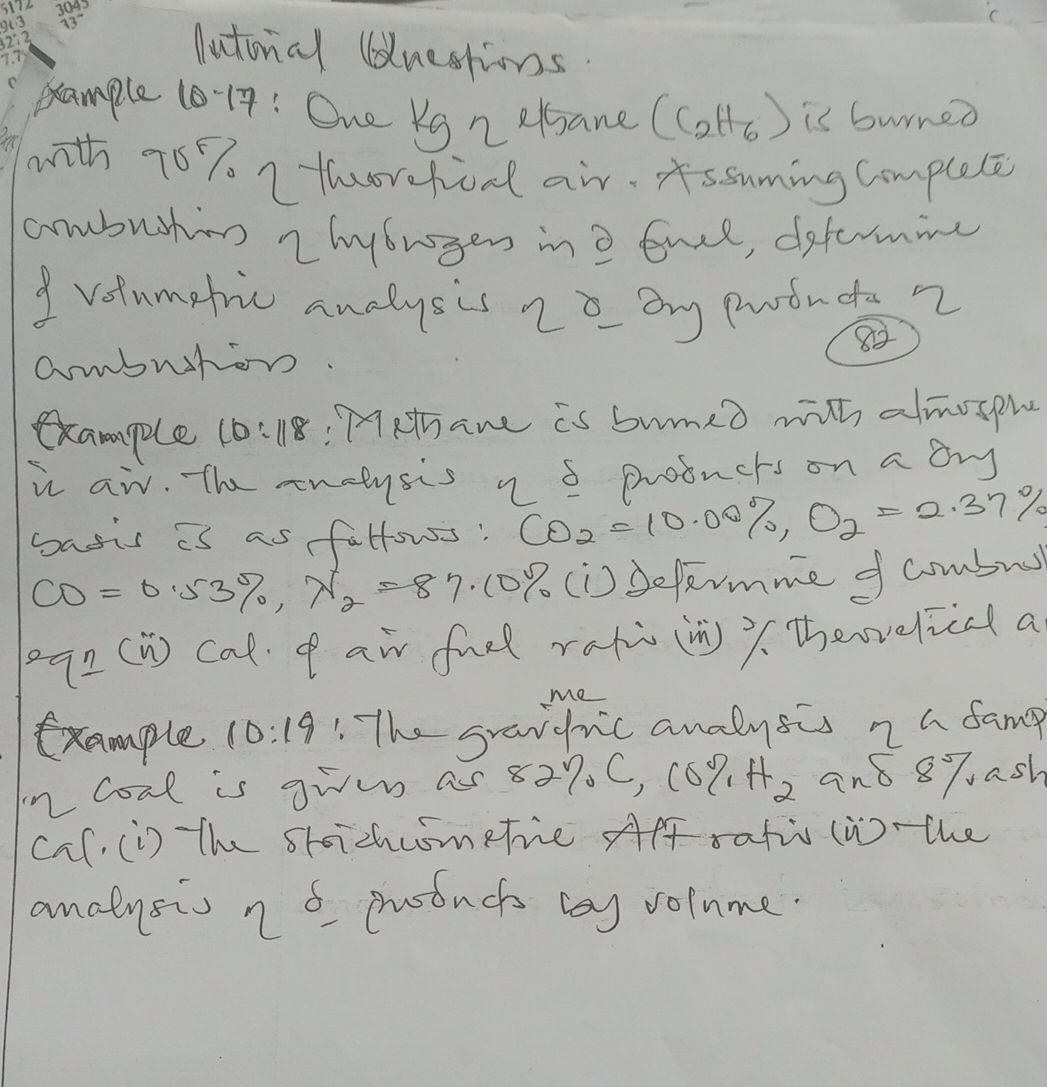 5172 3045
963 33
32.2
7.7
Tutorial Questions.
Example 10-17: One Kg of ethane (C2H6) is burned
with 90% of theoretical air. Assuming Complete
combustion of hydrogen in d fuel, determine
d volumetric analysis of d dry products of
combustion.
82
Example 10:18: Methane is burned with atmosphe
ic air. The analysis of d products on a dry
basis is as follows: CO2 = 10.00%, O2 = 2.37%
CO = 0.53%, N2 = 87.10% (i) Determine d combus
eqn (ii) Cal. d air fuel ratio (iii) % Theoretical a
me
Example 10:19: The gravitric analysis of a samp
of coal is given as 82% C, 10% H2 and 8% ash
Cal. (i) The Stoichiometric A/F ratio (ii) The
analysis of d products by volume.